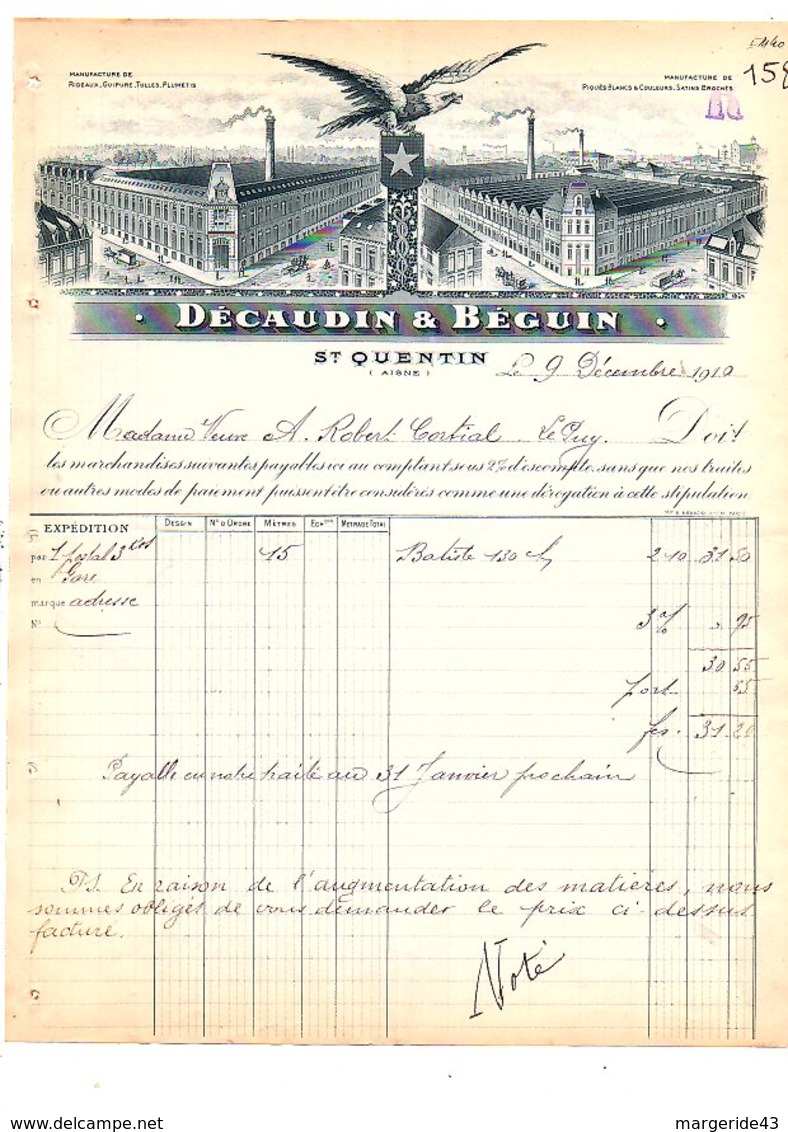 MANUFACTURE DE
RIDEAUX, GUIPURE, TULLES, PLUMETIS
MANUFACTURE DE
PIQUÉS BLANCS & COULEURS, SATINS BROCHÉS
158
DÉCAUDIN & BÉGUIN
ST QUENTIN
( AISNE )
Le 9 Décembre 1910
Madame Veuve A. Robert Cortial Le Puy. Doit
les marchandises suivantes payables ici au comptant sous 2% d'escompte, sans que nos traites
ou autres modes de paiement puissent être considérés comme une dérogation à cette stipulation.
EXPÉDITION DESSIN N° D'ORDRE MÈTRES ECHons METRAGE TOTAL
par 1 Postal 3 Kos 15 Batiste 130 c/m 2 10 31 50
en Gare
marque adresse
N° 3% " 95
30 55
Port 65
fcs. 31 20
Payable en notre traite au 31 Janvier prochain
PS. En raison de l'augmentation des matières, nous
sommes obligés de vous demander le prix ci-dessus
facturé.
Noté
margeride43